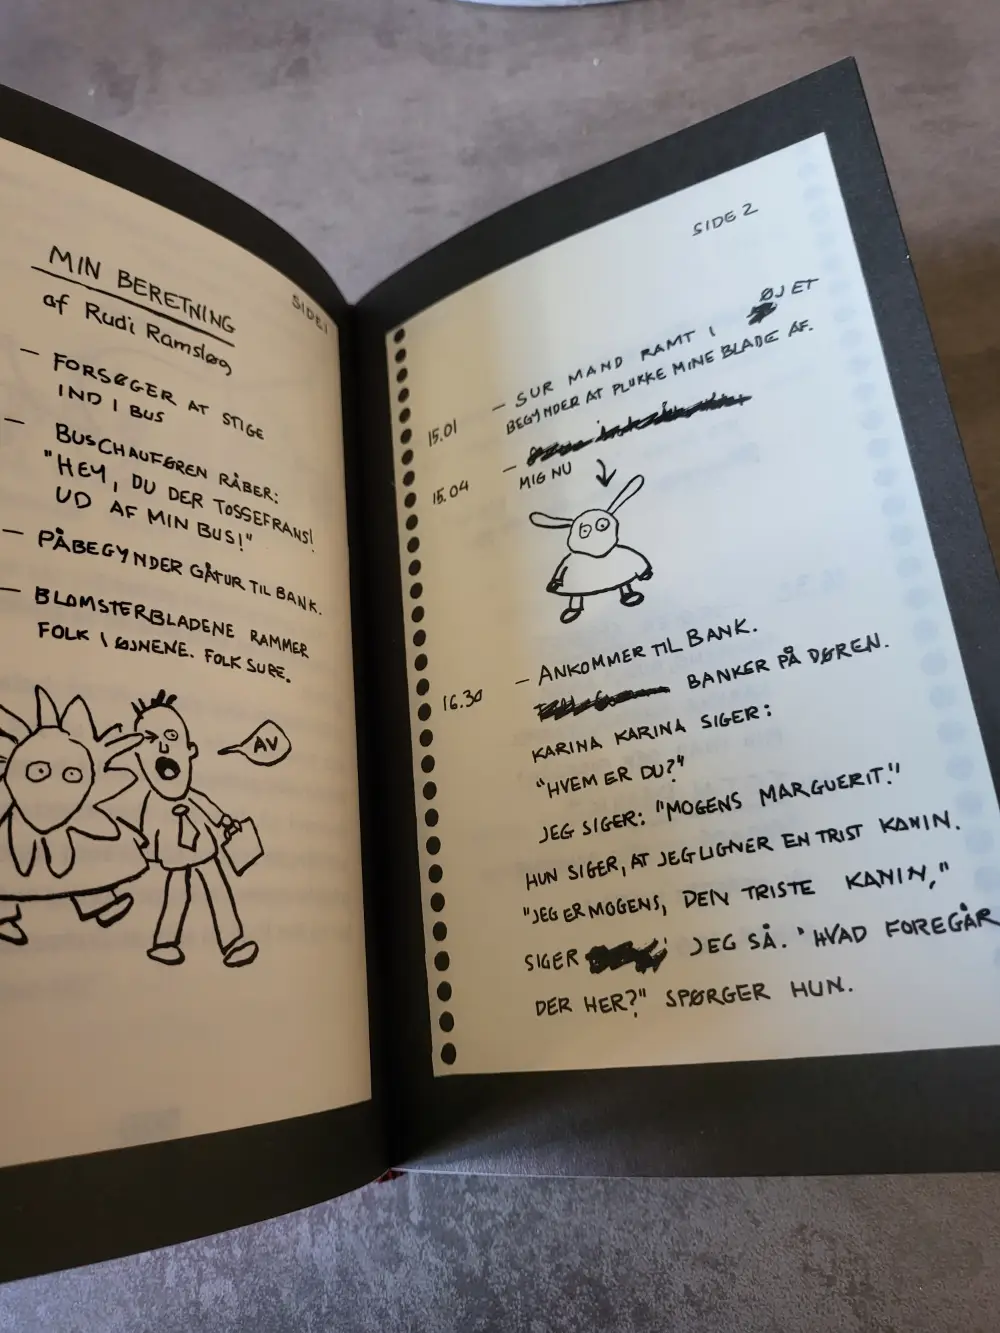 SIDE 1
MIN BERETNING
af Rudi Ramsløg
— FORSØGER AT STIGE
IND I BUS
— BUSCHAUFØREN RÅBER:
"HEY, DU DER TOSSEFRANS!
UD AF MIN BUS!"
— PÅBEGYNDER GÅTUR TIL BANK.
— BLOMSTERBLADENE RAMMER
FOLK I ØJNENE. FOLK SURE.
AV
SIDE 2
15.01 — SUR MAND RAMT I ØJET
BEGYNDER AT PLUKKE MINE BLADE AF.
15.04 —
MIG NU
16.30 — ANKOMMER TIL BANK.
BANKER PÅ DØREN.
KARINA KARINA SIGER:
"HVEM ER DU?"
JEG SIGER: "MOGENS MARGUERIT."
HUN SIGER, AT JEG LIGNER EN TRIST KANIN.
"JEG ER MOGENS, DEN TRISTE KANIN,"
SIGER JEG SÅ. "HVAD FOREGÅR
DER HER?" SPØRGER HUN.